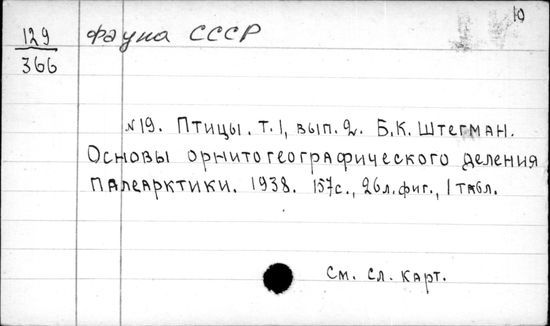 10
129 Фауна СССР
366
№19. Птицы. Т.1, вып. 2. Б.К. Штегман.
Основы орнитогеографического деления
Палеарктики. 1938. 157с., 26л.фиг., 1 табл.
См. сл. карт.